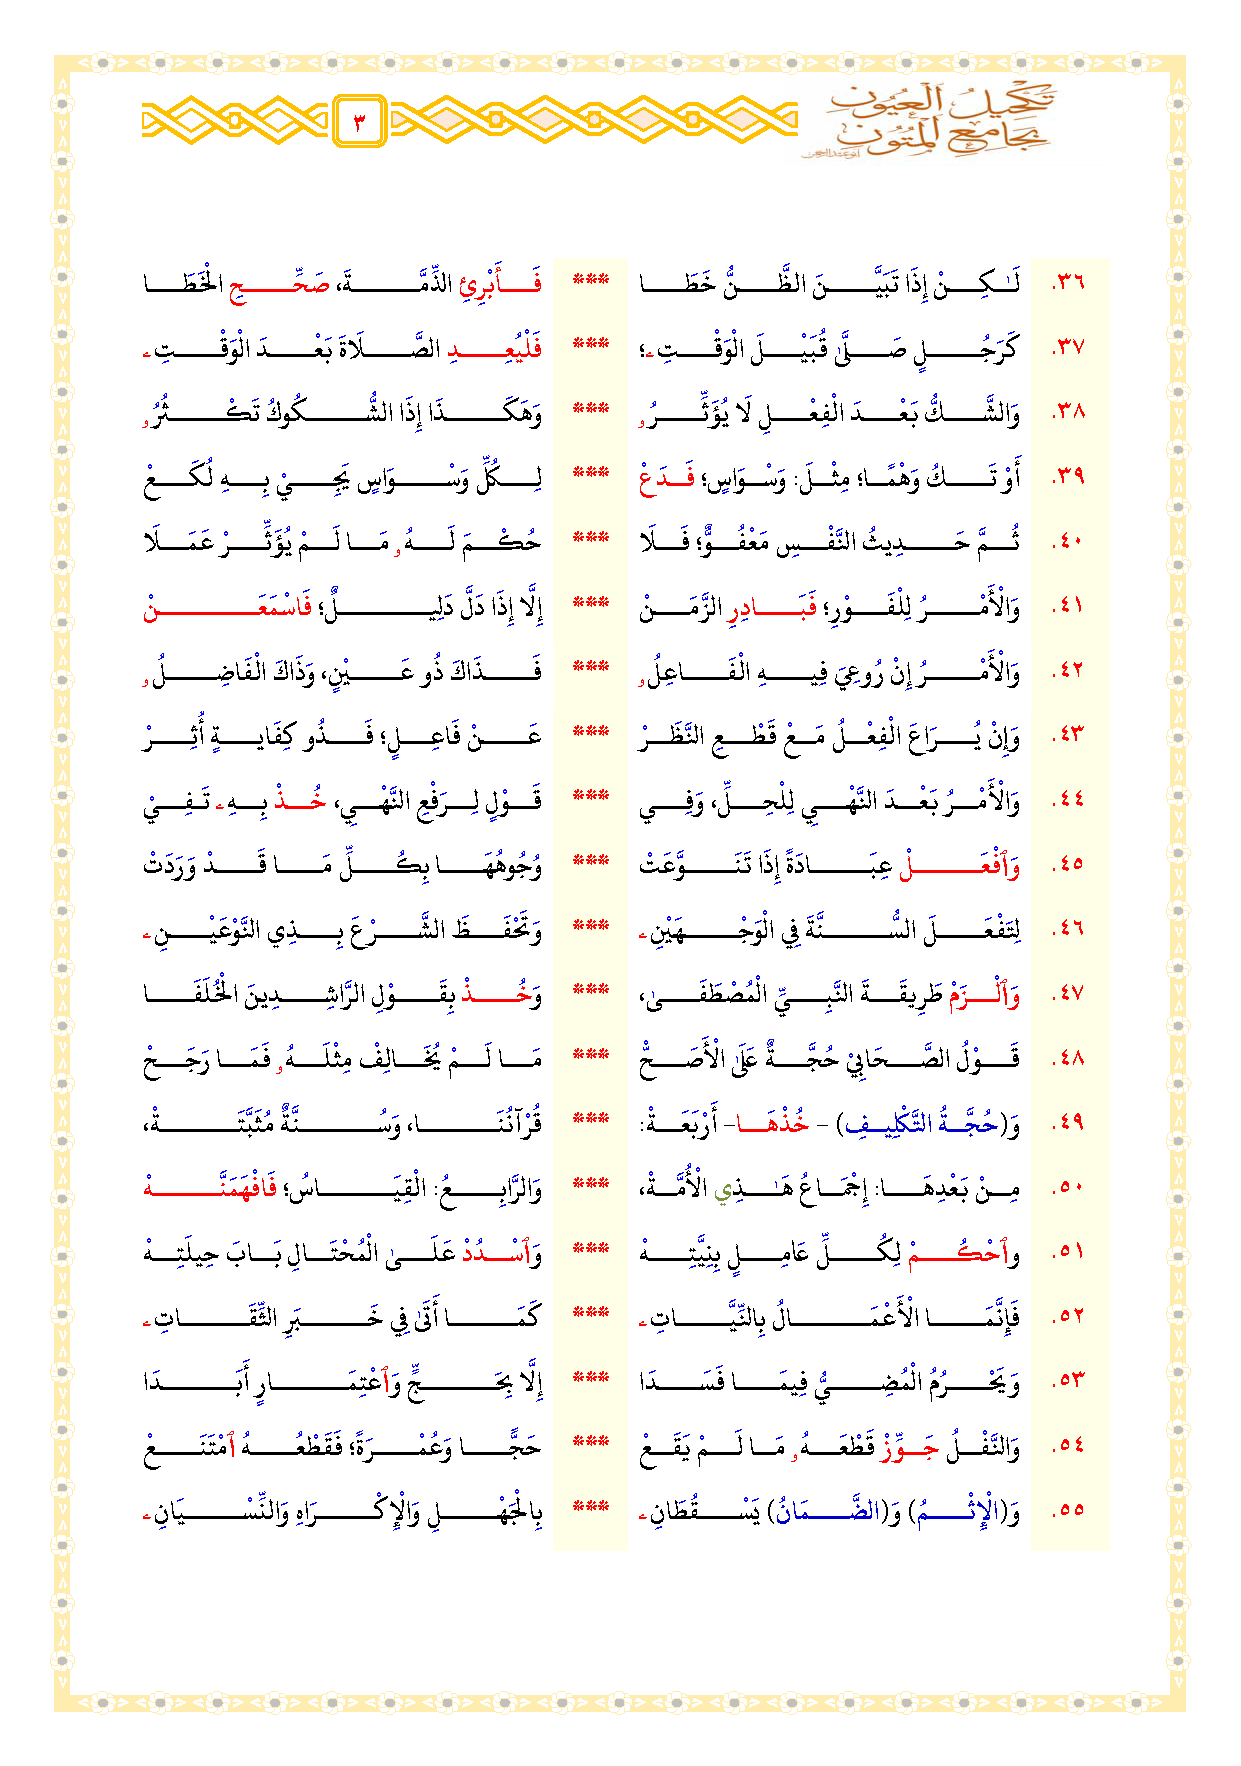 تكحيل العيون
بجامع المتون
أبو عبد الرحمن
٣
٣٦. لَٰكِنْ إِذَا تَبَيَّنَ الظَّنُّ خَطَا *** فَأَبْرِئِ الذِّمَّةَ، صَحِّحِ الْخَطَا
٣٧. كَرَجُلٍ صَلَّىٰ قُبَيْلَ الْوَقْتِۦ؛ *** فَلْيُعِدِ الصَّلَاةَ بَعْدَ الْوَقْتِۦ
٣٨. وَالشَّكُّ بَعْدَ الْفِعْلِ لَا يُؤَثِّرُۥ *** وَهَكَذَا إِذَا الشُّكُوكُ تَكْثُرُۥ
٣٩. أَوْ تَكُ وَهْمًا؛ مِثْلَ: وَسْوَاسٍ؛ فَدَعْ *** لِكُلِّ وَسْوَاسٍ يَجِيْ بِهِ لُكَعْ
٤٠. ثُمَّ حَدِيثُ النَّفْسِ مَعْفُوٌّ؛ فَلَا *** حُكْمَ لَهُۥ مَا لَمْ يُؤَثِّرْ عَمَلَا
٤١. وَالْأَمْرُ لِلْفَوْرِ؛ فَبَادِرِ الزَّمَنْ *** إِلَّا إِذَا دَلَّ دَلِيلٌ؛ فَاسْمَعَنْ
٤٢. وَالْأَمْرُ إِنْ رُوعِيَ فِيهِ الْفَاعِلُۥ *** فَذَاكَ ذُو عَيْنٍ، وَذَاكَ الْفَاضِلُۥ
٤٣. وَإِنْ يُرَاعَ الْفِعْلُ مَعْ قَطْعِ النَّظَرْ *** عَنْ فَاعِلٍ؛ فَذُو كِفَايَةٍ أُثِرْ
٤٤. وَالْأَمْرُ بَعْدَ النَّهْيِ لِلْحِلِّ، وَفِي *** قَوْلٍ لِرَفْعِ النَّهْيِ، خُذْ بِهِۦ تَفِيْ
٤٥. وَٱفْعَلْ عِبَادَةً إِذَا تَنَوَّعَتْ *** وُجُوهُهَا بِكُلِّ مَا قَدْ وَرَدَتْ
٤٦. لِتَفْعَلَ السُّنَّةَ فِي الْوَجْهَيْنِۦ *** وَتَحْفَظَ الشَّرْعَ بِذِي النَّوْعَيْنِۦ
٤٧. وَٱلْزَمْ طَرِيقَةَ النَّبِيِّ الْمُصْطَفَىٰ، *** وَخُذْ بِقَوْلِ الرَّاشِدِينَ الْخُلَفَا
٤٨. قَوْلُ الصَّحَابِيْ حُجَّةٌ عَلَى الْأَصَحّْ *** مَا لَمْ يُخَالِفْ مِثْلَهُۥ فَمَا رَجَحْ
٤٩. وَ(حُجَّةُ التَّكْلِيفِ) – خُذْهَا– أَرْبَعَةْ: *** قُرْآنُنَا، وَسُنَّةٌ مُثَبَّتَةْ،
٥٠. مِنْ بَعْدِهَا: إِجْمَاعُ هَٰذِي الْأُمَّةْ، *** وَالرَّابِعُ: الْقِيَاسُ؛ فَافْهَمَنَّهْ
٥١. وٱحْكُمْ لِكُلِّ عَامِلٍ بِنِيَّتِهْ *** وَٱسْدُدْ عَلَى الْمُحْتَالِ بَابَ حِيلَتِهْ
٥٢. فَإِنَّمَا الْأَعْمَالُ بِالنِّيَّاتِۦ *** كَمَا أَتَىٰ فِي خَبَرِ الثِّقَاتِۦ
٥٣. وَيَحْرُمُ الْمُضِيُّ فِيمَا فَسَدَا *** إِلَّا بِحَجٍّ وَٱعْتِمَارٍ أَبَدَا
٥٤. وَالنَّفْلُ جَوِّزْ قَطْعَهُۥ مَا لَمْ يَقَعْ *** حَجًّا وَعُمْرَةً؛ فَقَطْعُهُ ٱمْتَنَعْ
٥٥. وَ(الْإِثْمُ) وَ(الضَّمَانُ) يَسْقُطَانِۦ *** بِالْجَهْلِ وَالْإِكْرَاهِ وَالنِّسْيَانِۦ